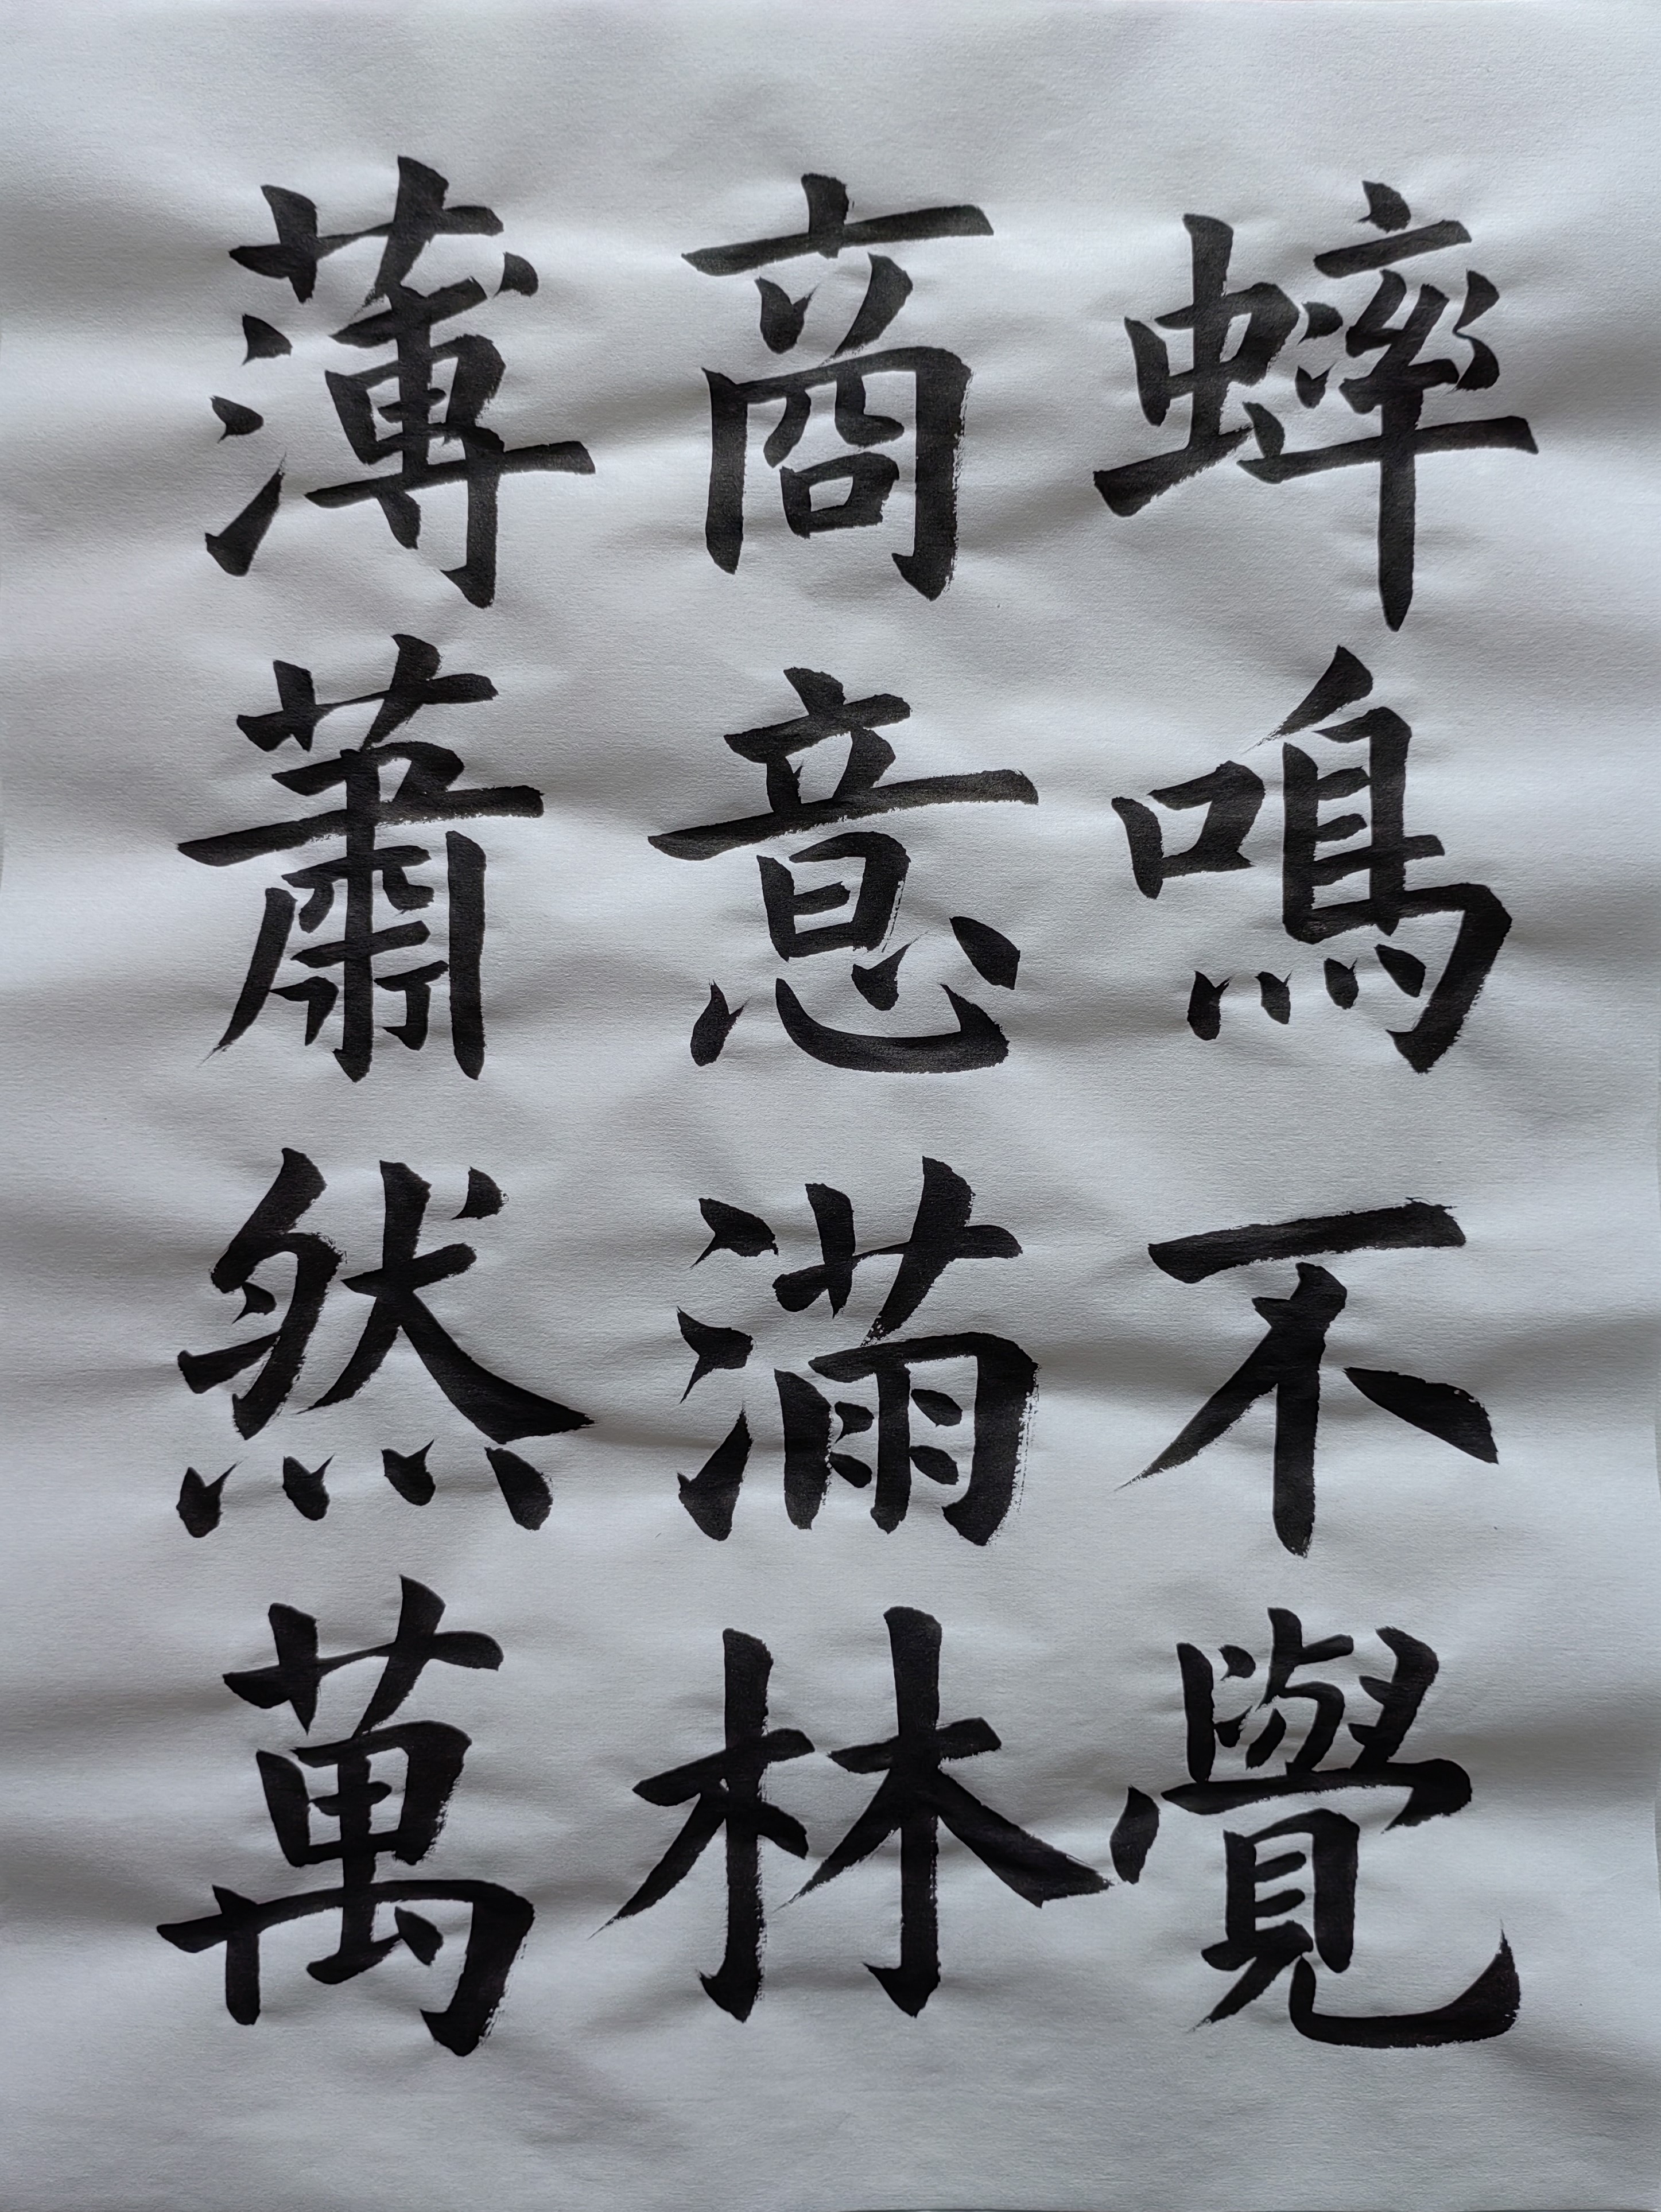 蟀鳴不覺
商意滿林
薄蕭然萬